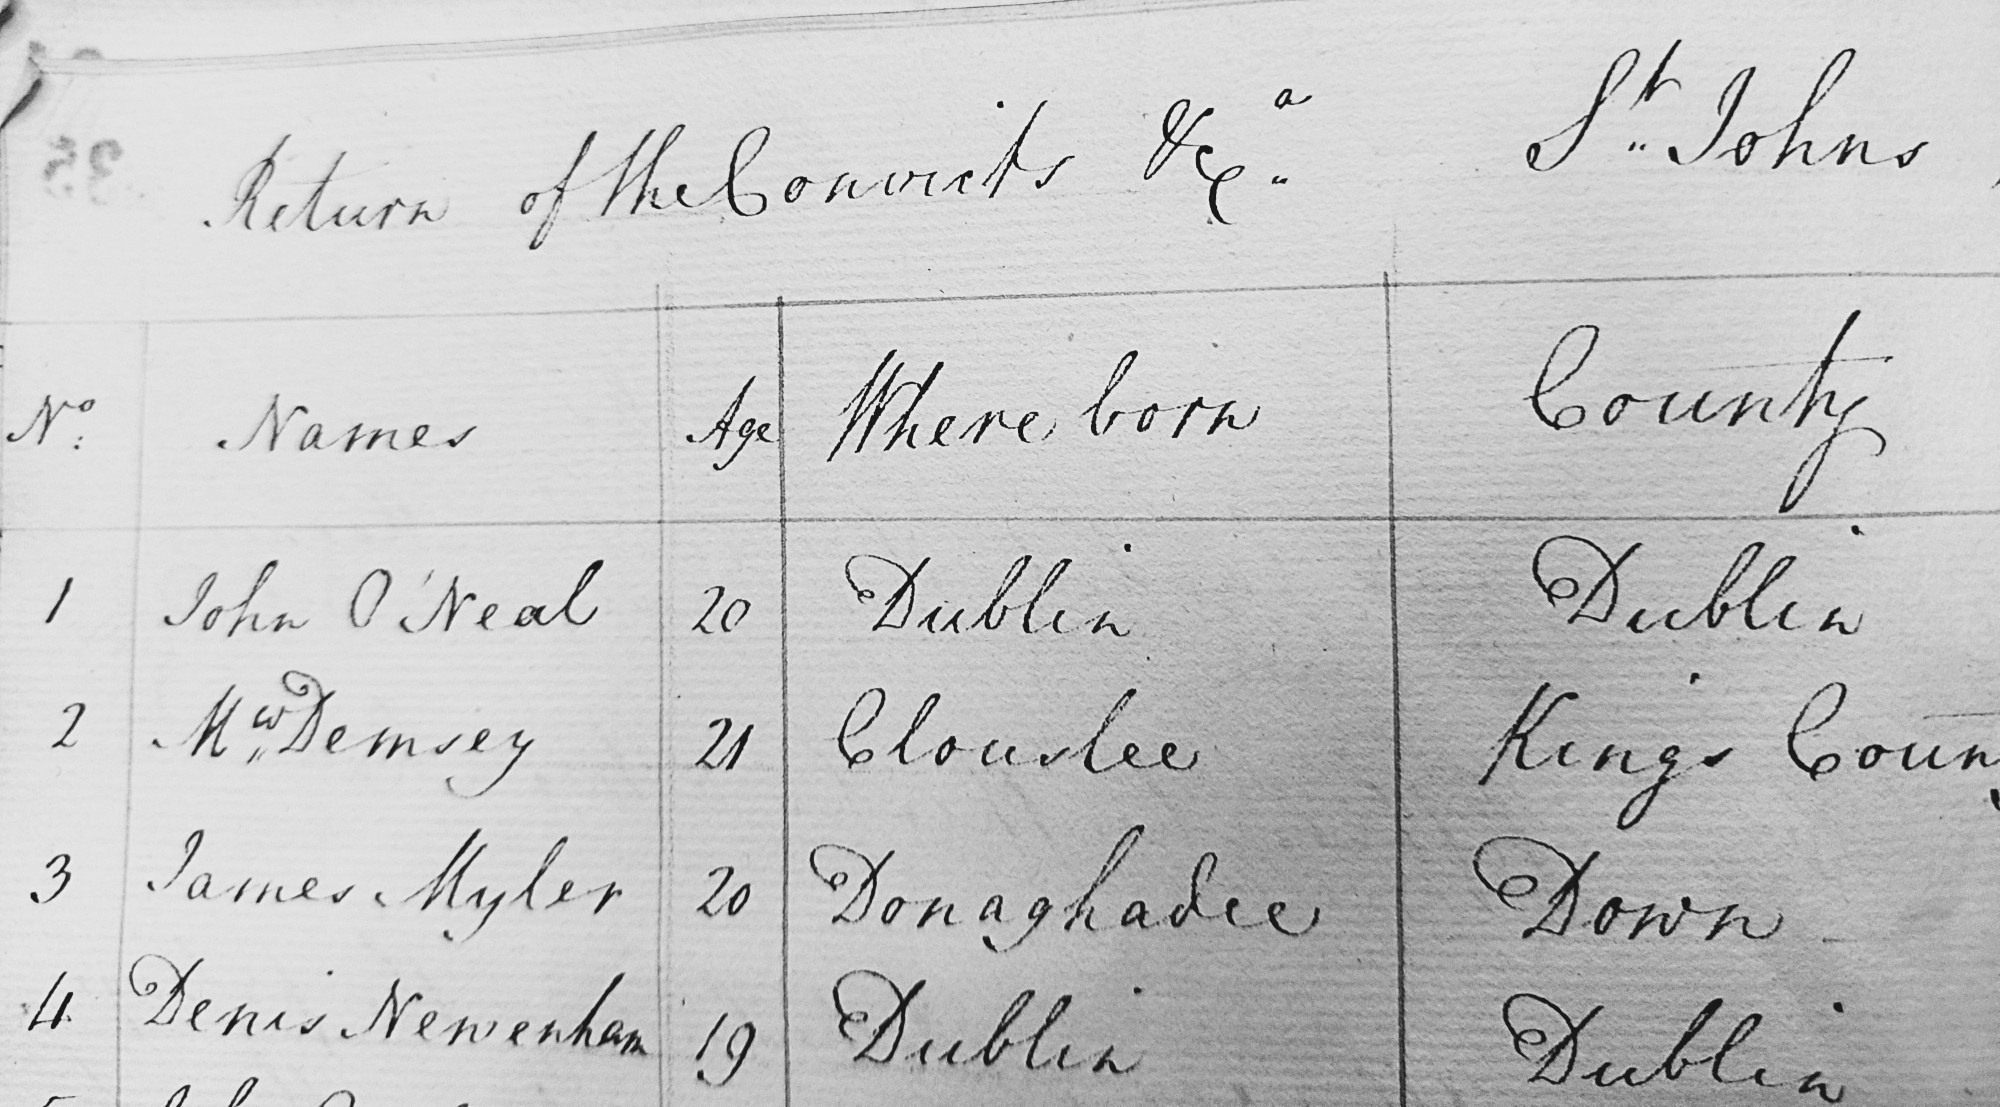 Return of the Convicts &c.a St. Johns
No. Names Age Where born County
1 John O'Neal 20 Dublin Dublin
2 Mw. Demsey 21 Clouslee Kings Coun
3 James Myler 20 Donaghadee Down
4 Denis Newenham 19 Dublin Dublin